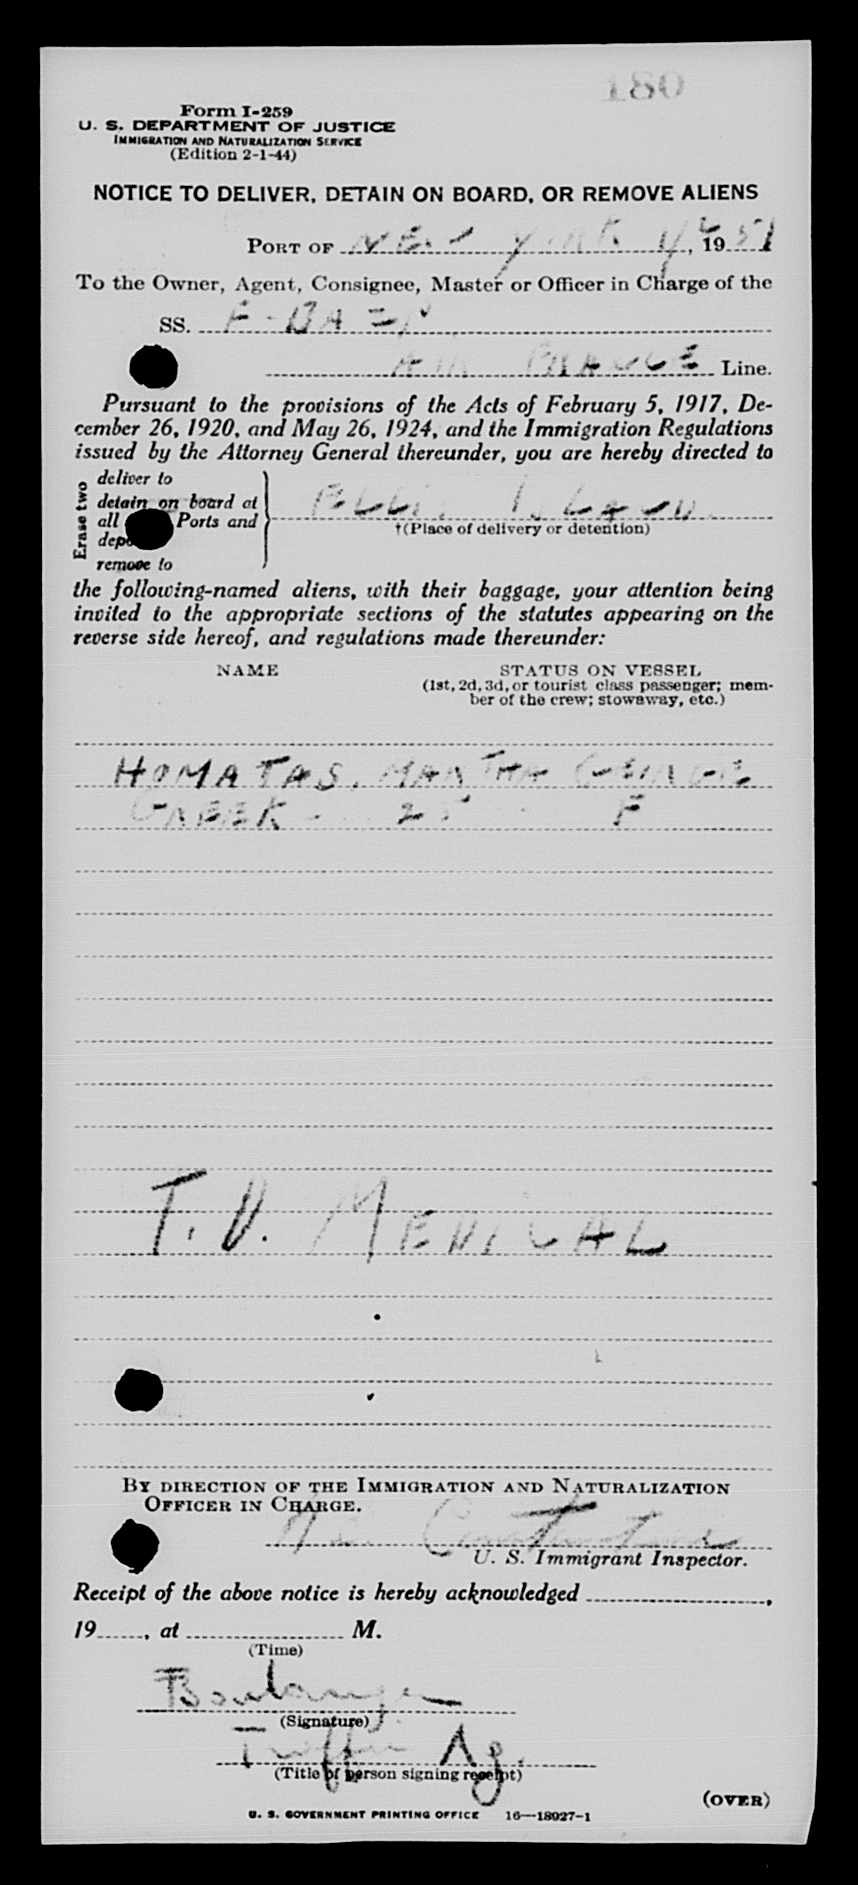 180
Form I-259
U. S. DEPARTMENT OF JUSTICE
IMMIGRATION AND NATURALIZATION SERVICE
(Edition 2-1-44)
NOTICE TO DELIVER, DETAIN ON BOARD, OR REMOVE ALIENS
PORT OF NEW YORK 4/6, 1951
To the Owner, Agent, Consignee, Master or Officer in Charge of the
SS. F-BAZN
AIR FRANCE Line.
Pursuant to the provisions of the Acts of February 5, 1917, De-
cember 26, 1920, and May 26, 1924, and the Immigration Regulations
issued by the Attorney General thereunder, you are hereby directed to
Erase two
deliver to
detain on board at
all Ports and
remove to
ELLIS ISLAND.
†(Place of delivery or detention)
the following-named aliens, with their baggage, your attention being
invited to the appropriate sections of the statutes appearing on the
reverse side hereof, and regulations made thereunder:
NAME STATUS ON VESSEL
(1st, 2d, 3d, or tourist class passenger; mem-
ber of the crew; stowaway, etc.)
HOMATAS, MARTHA GEORGE
GREEK - 25 - F
T. D. MEDICAL
BY DIRECTION OF THE IMMIGRATION AND NATURALIZATION
OFFICER IN CHARGE.
U. S. Immigrant Inspector.
Receipt of the above notice is hereby acknowledged ,
19 , at M.
(Time)
Boulanger
(Signature)
Traffic Ag.
(Title of person signing receipt)
(OVER)
U. S. GOVERNMENT PRINTING OFFICE 16—18927-1